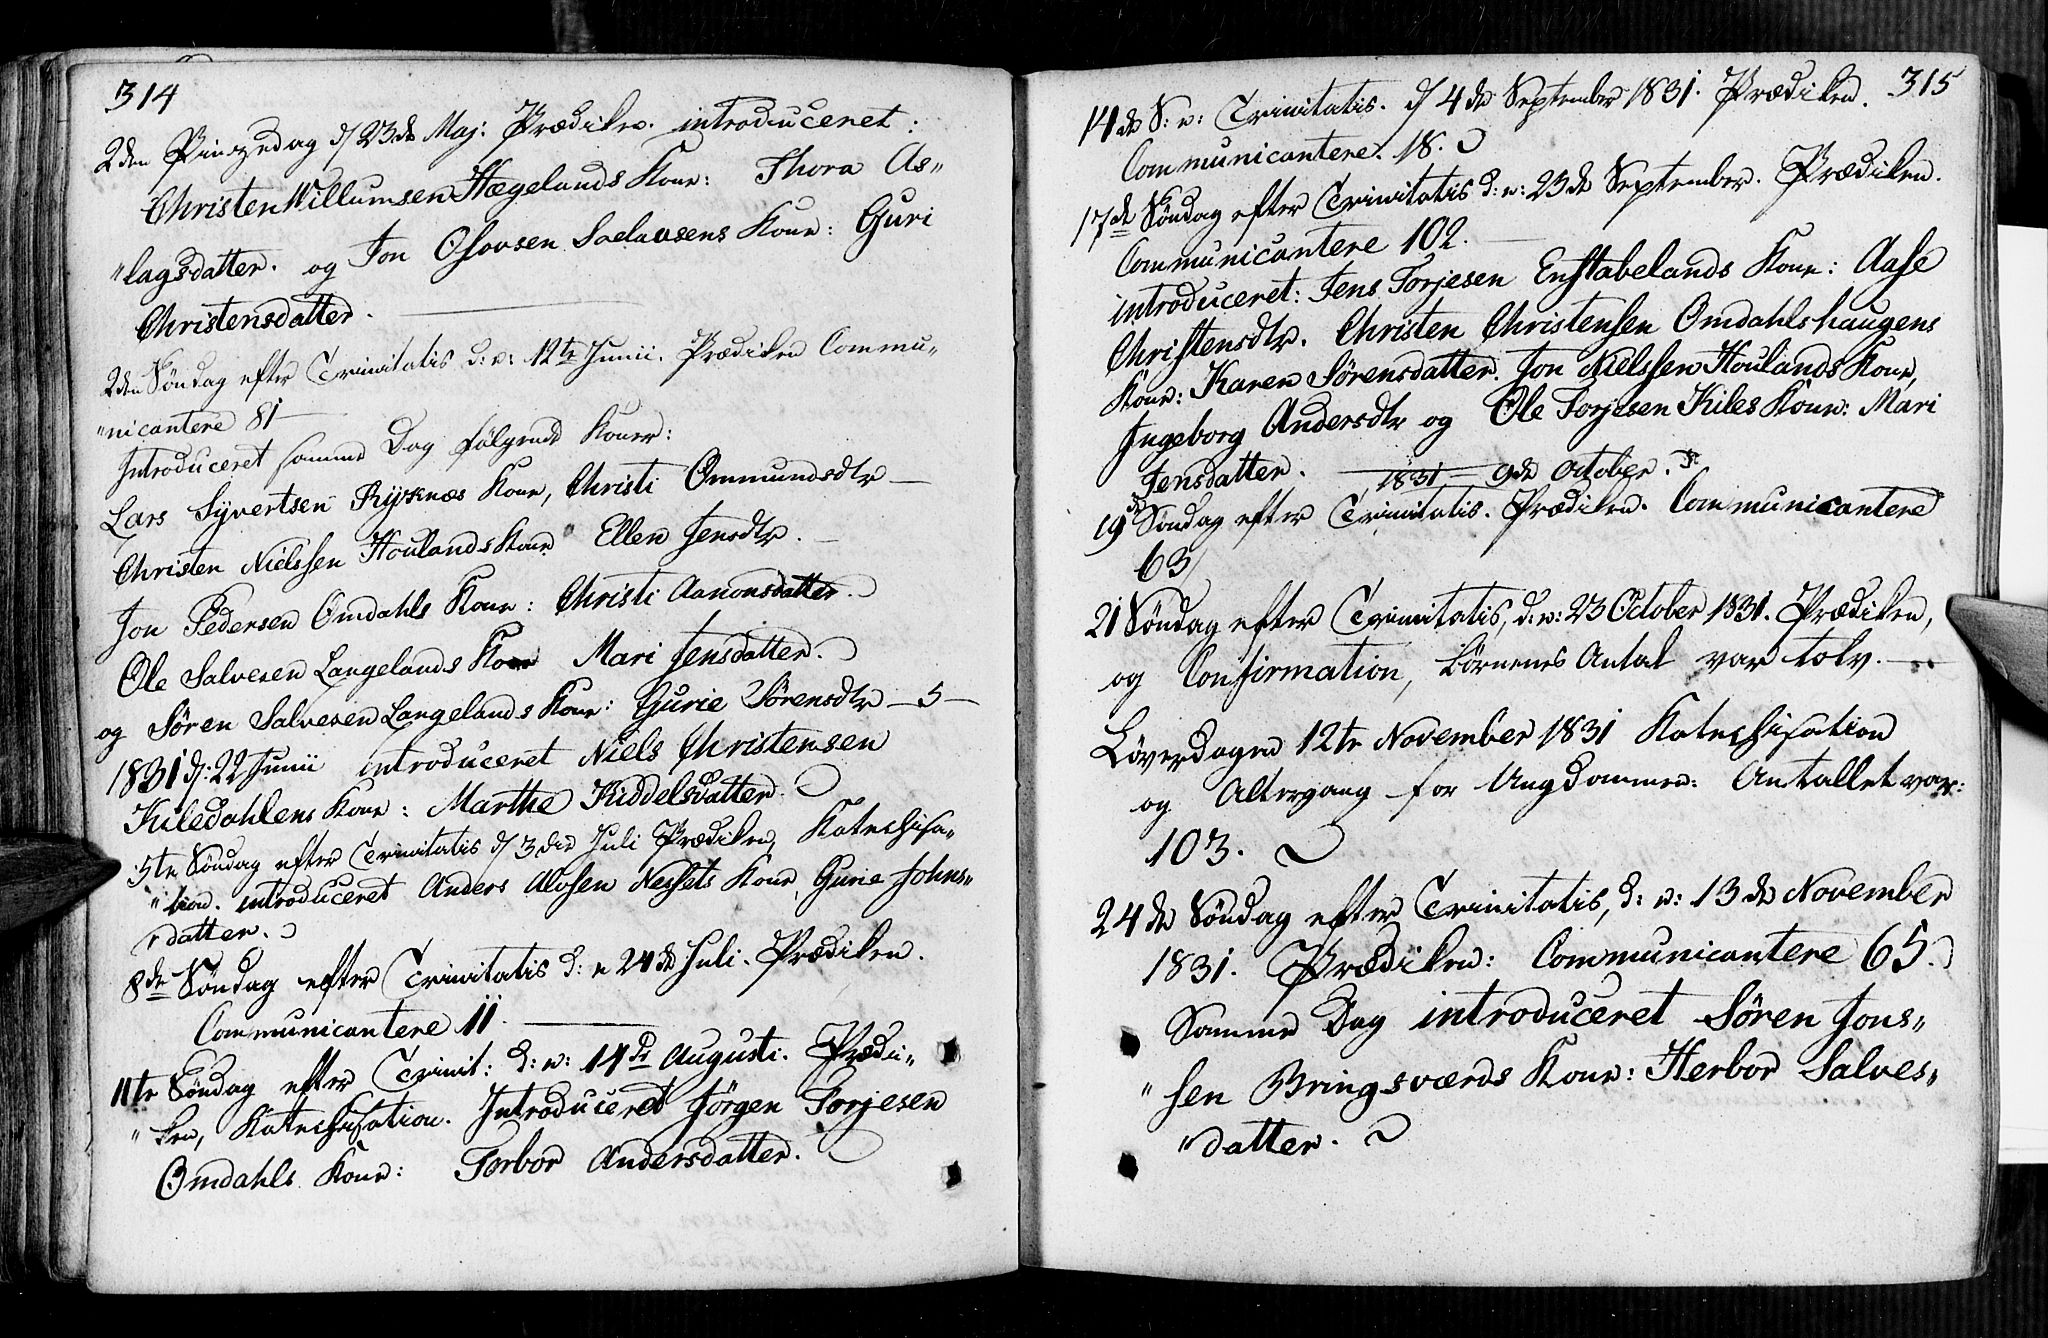 314
2den Pinzedag d/ 23de Maj. Prædiken. introduceret:
Christen Willumsen Hægelands Kone: Thora As„
„lagsdatter. og Jon Olsen Kone: Guri
Christensdatter.
2den Søndag efter Trinitatis d: e: 12te Junii. Prædiken Commu„
„nicantere 81
Introduceret samme Dag følgende Koner:
Lars Syvertsen Kone, Christi Ommundsdtr
Christen Nielssen Houlands Kone Ellen Jensdtr.
Jon Pedersen Omdahls Kone: Christi Aanonsdatter.
Ole Salvesen Langelands Kone Mari Jensdatter.
og Søren Salvesen Langelands Kone: Gurie Sørensdtr – 5 –
1831 d/: 22 Junii introduceret Niels Christensen
Kuledahlens Kone: Marthe Kiddelsdatter.
5te Søndag efter Trinitatis d/ 3die Juli Prædiken, Katechisa„
„tion. introduceret Anders Alofsen Nessets Kone, Gurie Johns„
„datter.
8de Søndag efter Trinitatis d: e 24de Juli. Prædiken.
Communicantere 11.
11te Søndag efter Trinit: d: e: 14de Augusti. Prædi„
„ken, Katechisation. Introduceret Jørgen Torjesen
Omdahls Kone: Torbor Andersdatter.
315
14de S: e: Trinitatis. d/ 4de September 1831. Prædiken.
Communicantere. 18.
17de Søndag efter Trinitatis d: e: 23de September. Prædiken.
Communicantere 102.
introduceret: Jens Torjesen Enstabelands Kone: Aase
Christensdtr. Christen Christensen Omdahlshaugens
Kone: Karen Sørensdatter. Jon Nielssen Houlands Kone,
Ingeborg Andersdtr og Ole Torjesen Kiles Kone: Mari
Jensdatter. 1831 9de October.
19de Søndag efter Trinitatis. Prædiken. Communicantere
63
21 Søndag efter Trinitatis, d: e: 23 October 1831. Prædiken,
og Confirmation, Børnenes Antal var tolv.
Løverdagen 12te November 1831 Katechisation
og Altergang for Ungdommen: Antallet var:
103.
24de Søndag efter Trinitatis, d: e: 13de November
1831. Prædiken: Communicantere 65.
Samme Dag introduceret Søren Jons„
„sen Bringsværds Kone: Herbor Salves„
„datter.